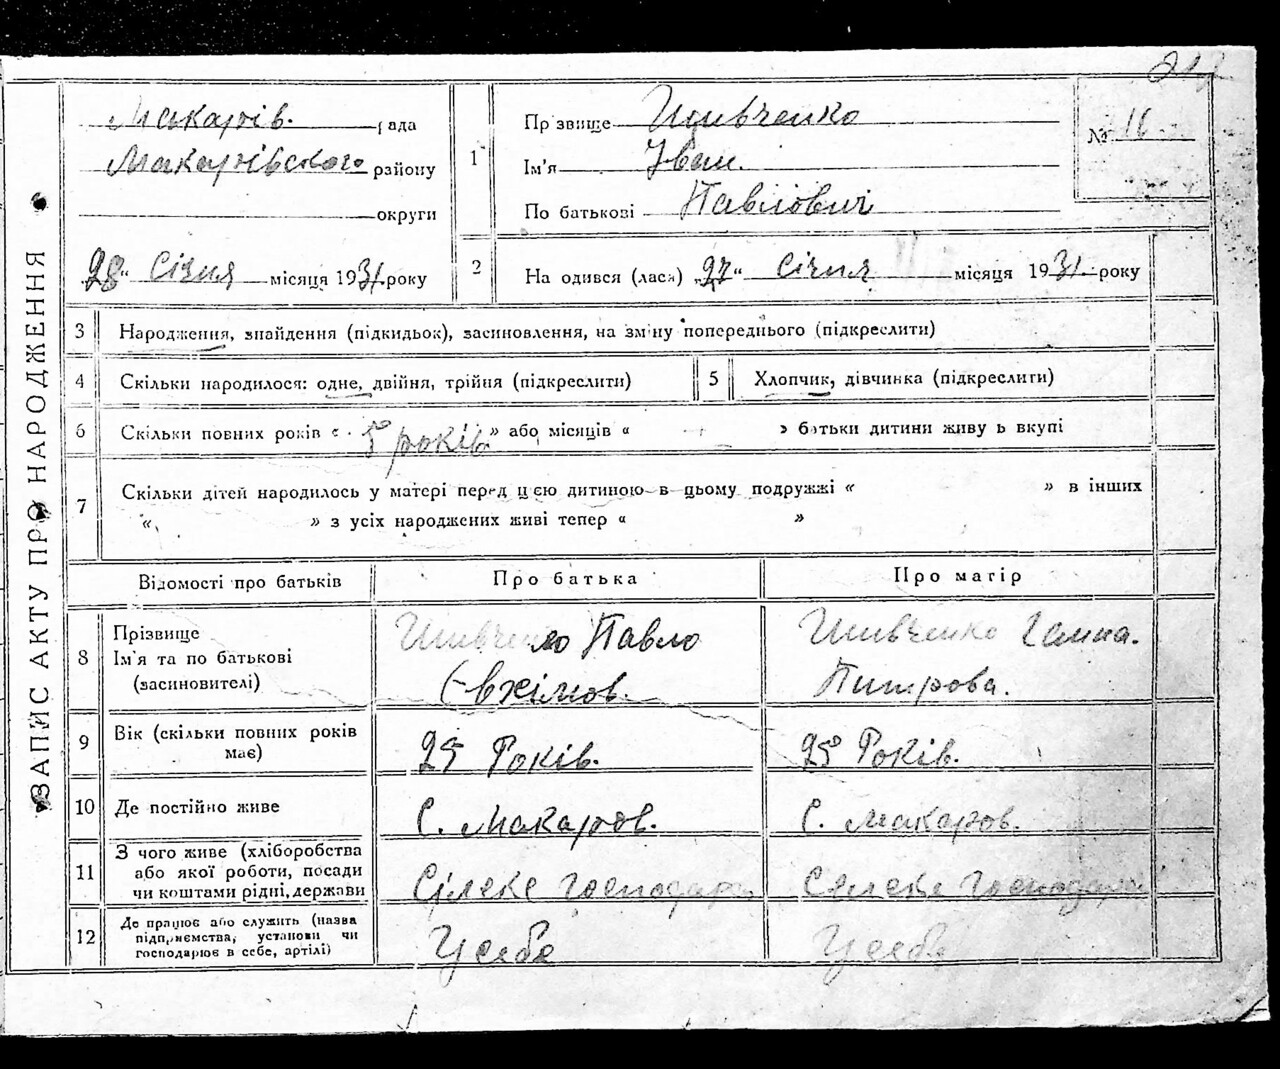 212
ЗАПИС АКТУ ПРО НАРОДЖЕННЯ
Макарів. рада
Макарівского району
округи
28 " Січня місяця 1931 року
1
Прізвище Шивченко
Ім'я Іван.
По батькові Павлович
№ 16
2
На одився (лася) „27" Січня місяця 1931 року
3 Народження, знайдення (підкидьок), засиновлення, на зміну попереднього (підкреслити)
4 Скільки народилося: одне, двійня, трійня (підкреслити)
5 Хлопчик, дівчинка (підкреслити)
6 Скільки повних років « 5 років » або місяців « — » батьки дитини живу ь вкупі
7 Скільки дітей народилось у матері перед цією дитиною в цьому подружжі « » в інших
« » з усіх народжених живі тепер « »
Відомості про батьків Про батька Про матір
8 Прізвище
Ім'я та по батькові
(засиновителі)
Шивченко Павло
Євхімов.
Шивченко Ганна.
Питрова.
9 Вік (скільки повних років
має)
25 Років.
25 Років.
10 Де постійно живе С. Макаров. С. Макаров.
11 З чого живе (хліборобства
або якої роботи, посади
чи коштами рідні, держави
Сілске господара
Сялске господара
12 Де працює або служить (назва
підприємства, установи чи
господарює в себе, артілі)
У себе
У себе